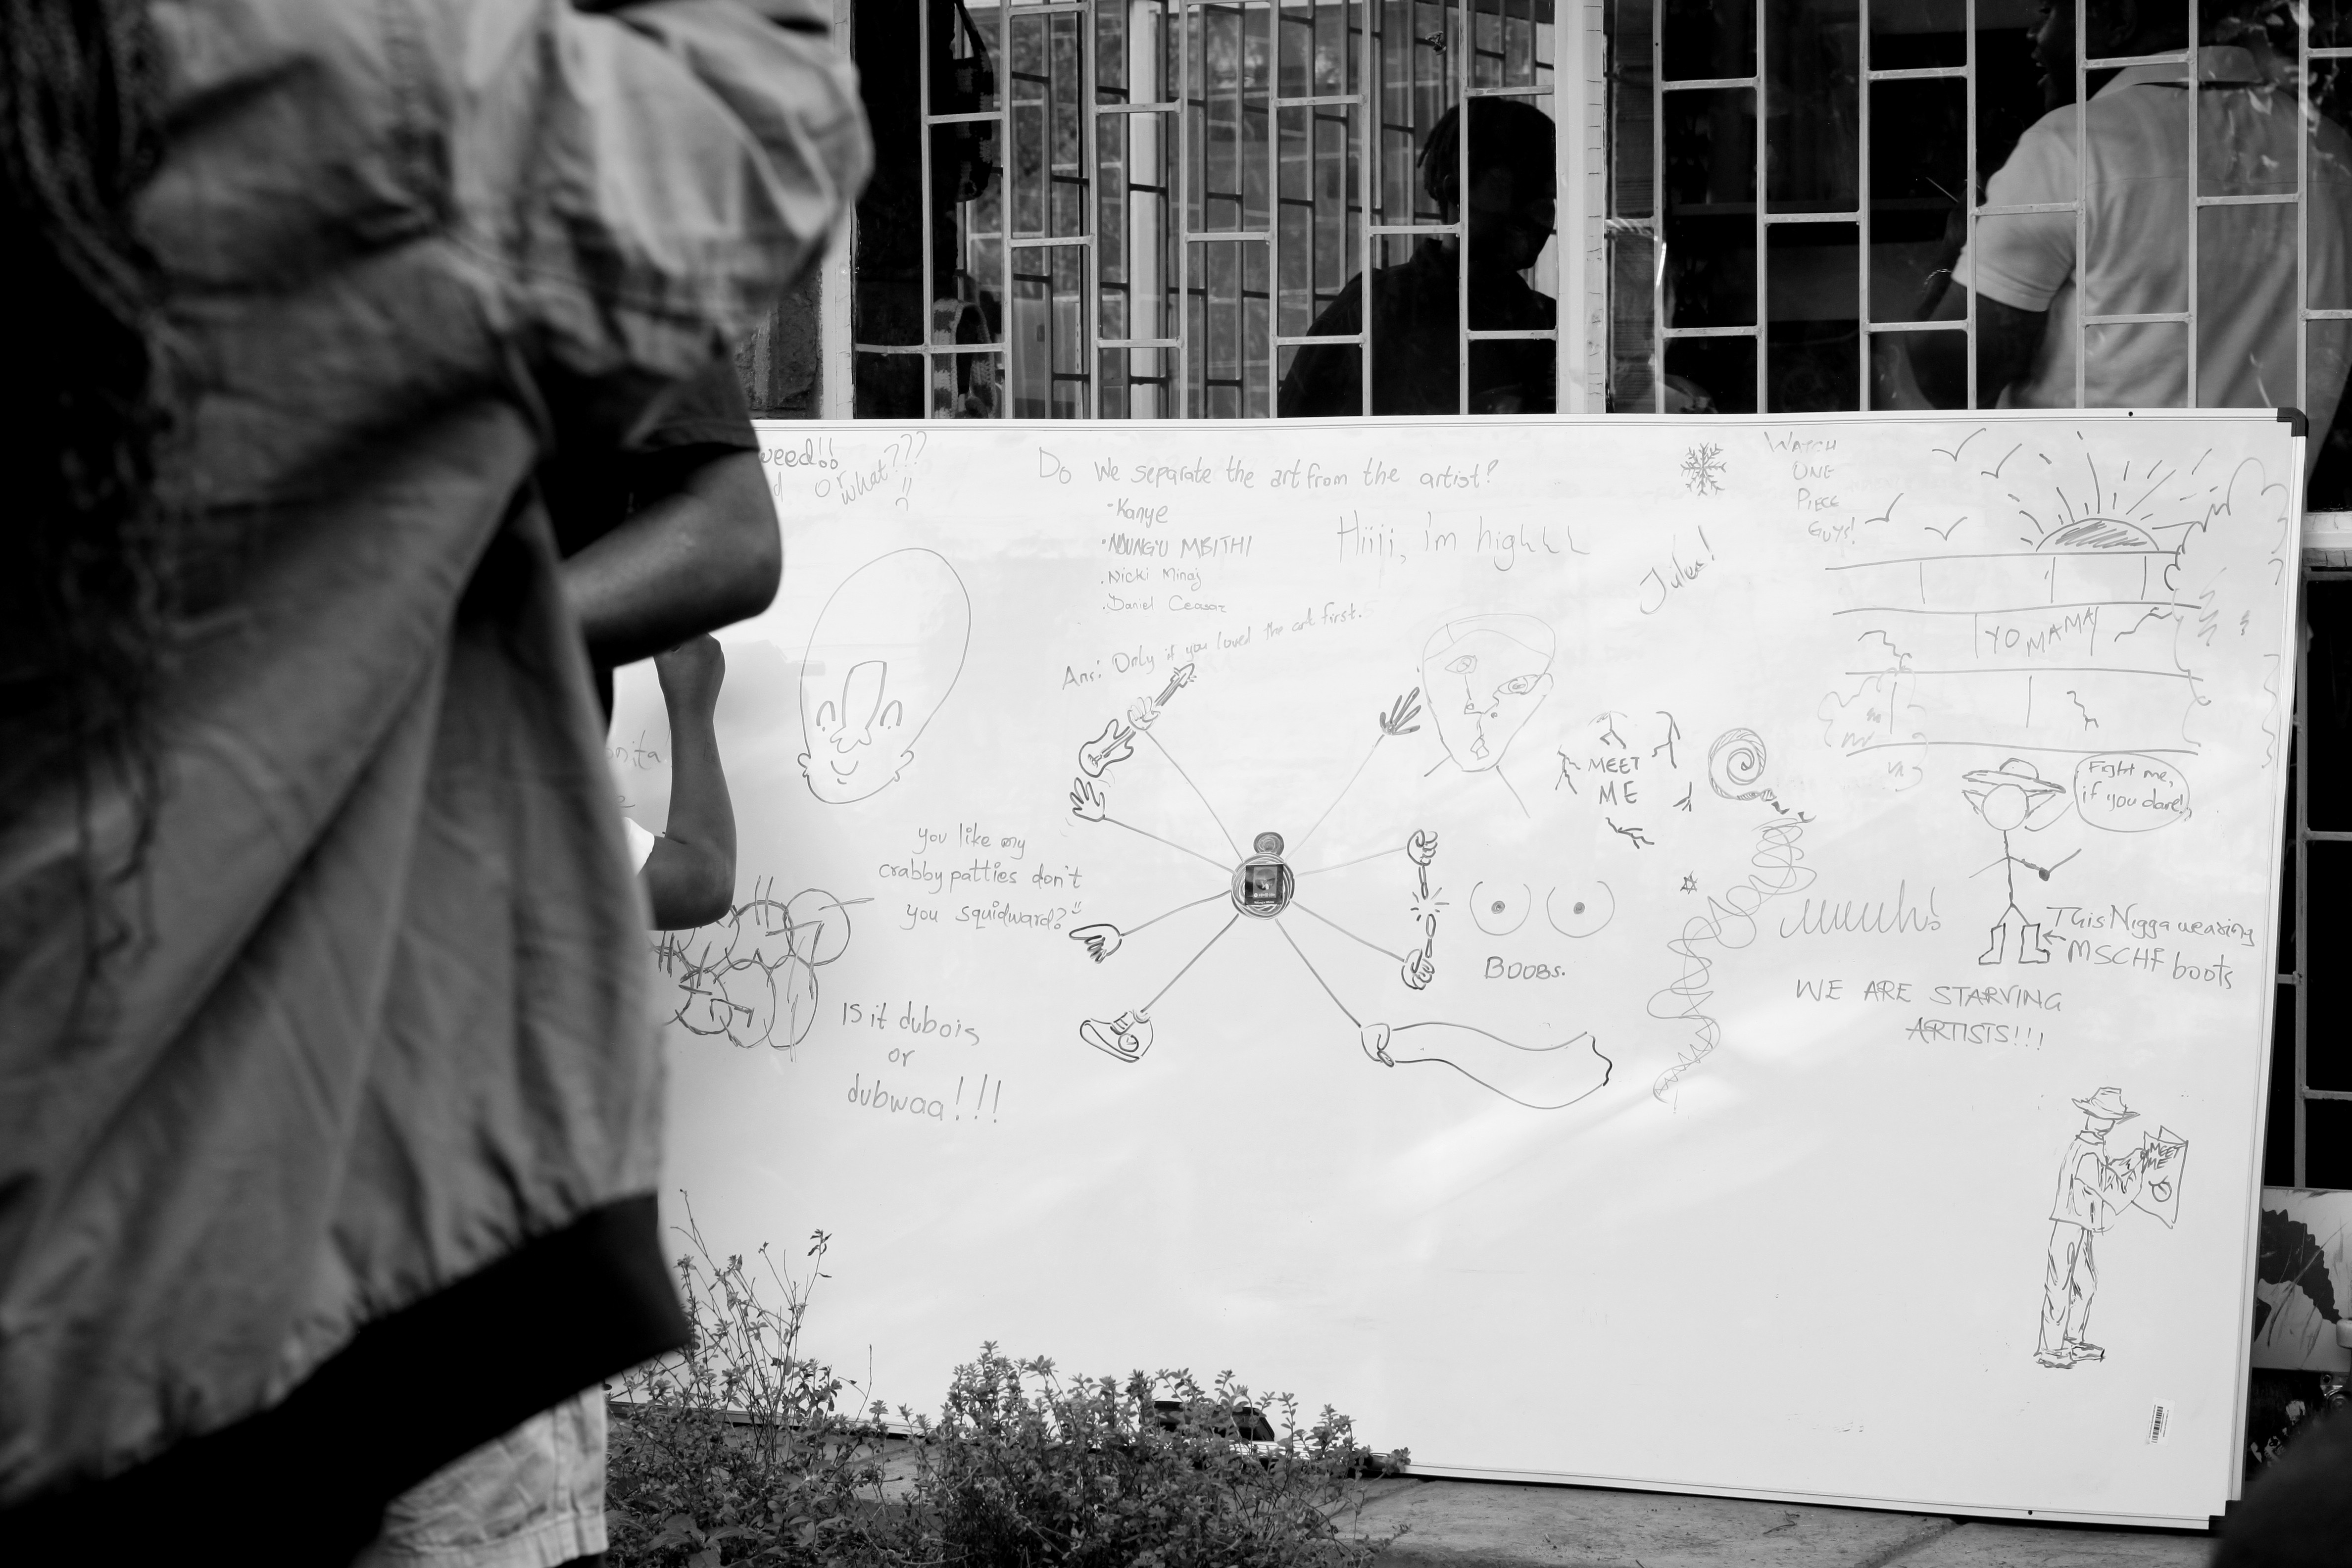 weed!!
or what???
Do we separate the art from the artist?
-Kanye
•NJUNG'U MBITHI
.Nicki Minaj
.Daniel Ceasar
Ans: Only if you loved the art first.
Hiiji, i'm highhh
WATCH
ONE
PIECE
GUYS!
YO MAMA
MEET
ME
Fight me,
if you dare!
you like my
crabby patties don't
you squidward?
BOOBS.
This Nigga wearing
MSCHF boots
WE ARE STARVING
ARTISTS!!!
IS it dubois
or
dubwaa!!!
MEET
ME